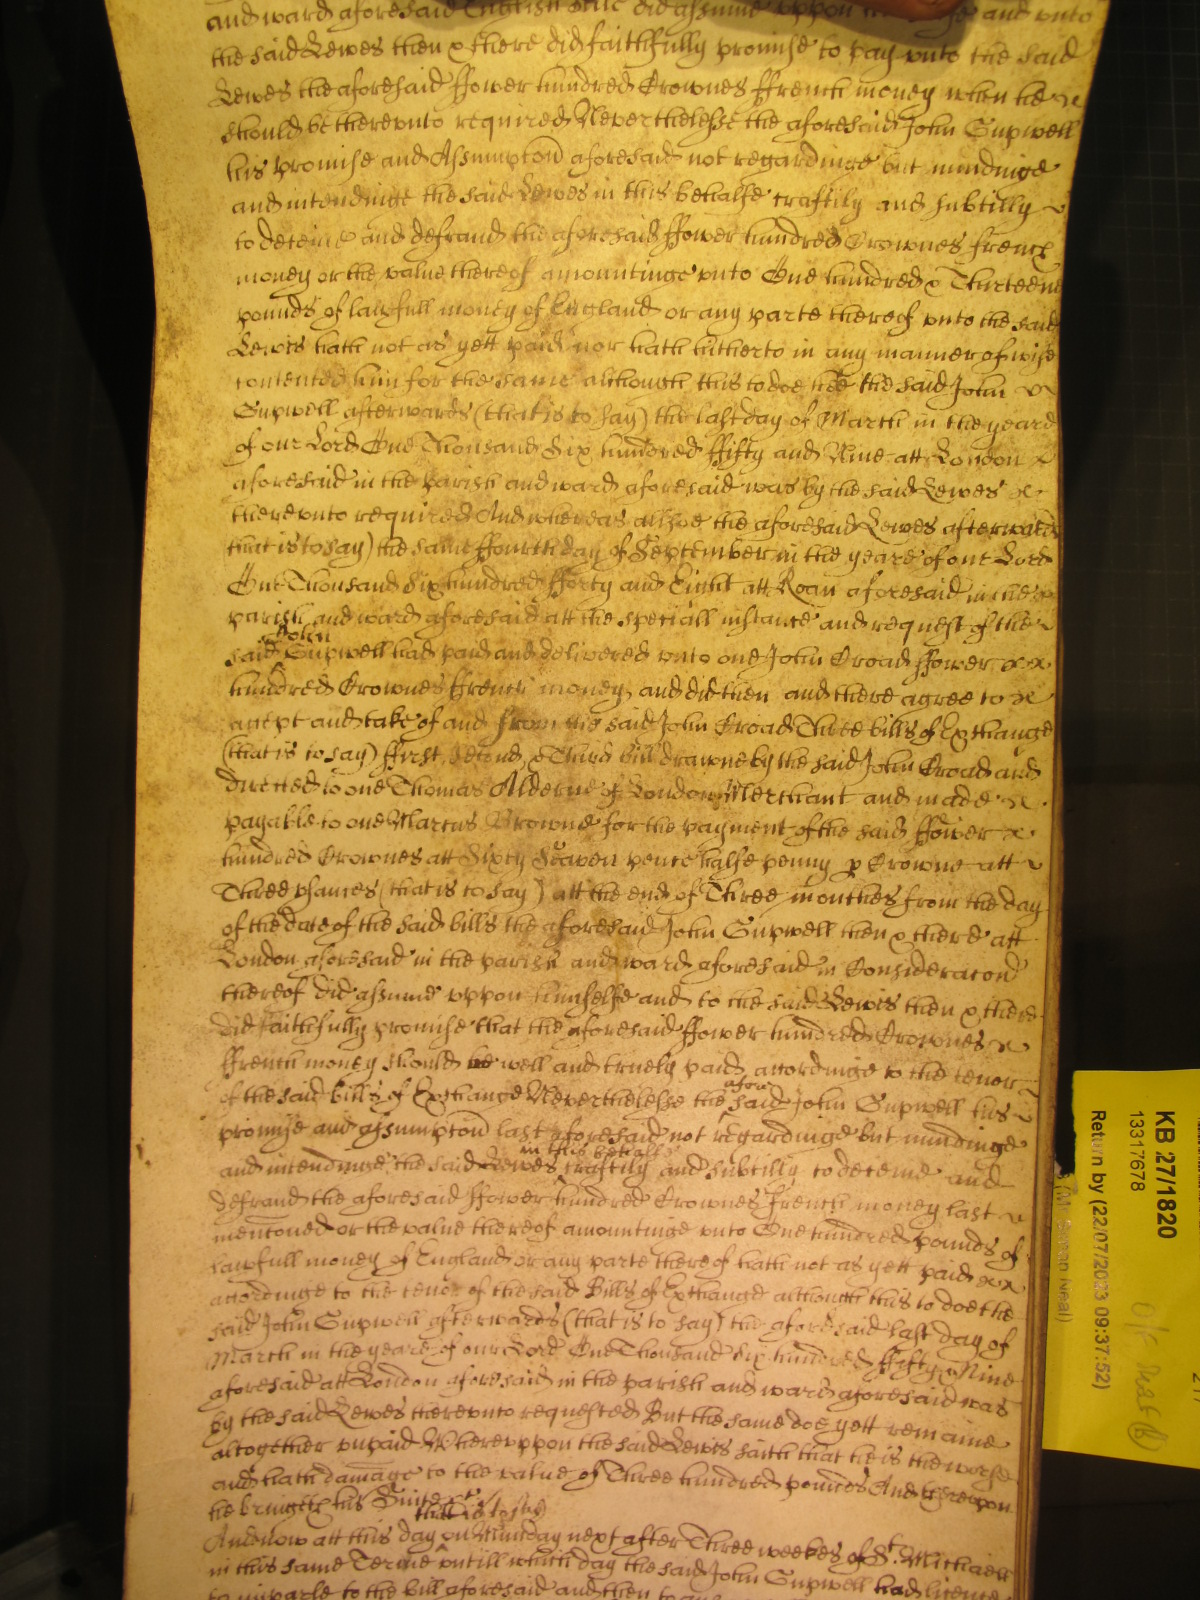 and ward aforesaid English did assume uppon and unto
the said Lewes then & there did faithfully promise to pay unto the said
Lewes the aforesaid ffower hundred Crownes ffrench money when he
should be thereunto required Neverthelesse the aforesaid John Gupwell
his promise and Assumpton aforesaid not regardinge but mindinge
and intendinge the said Lewes in this behalfe craftily and subtilly
to deteine and defraud the aforesaid ffower hundred Crownes french
money or the value thereof amountinge unto One hundred & Thirteene
pounds of lawfull money of England or any parte thereof unto the said
Lewis hath not as yett paid nor hath hitherto in any manner of wise
contented him for the same although this to doe hee the said John
Gupwell afterwards (that is to say) the last day of March in the yeare
of our Lord One Thousand Six hundred ffifty and Nine att London
aforesaid in the parish and ward aforesaid was by the said Lewes
thereunto required And whereas alsoe the aforesaid Lewes afterwards
that is to say) the same ffourth day of September in the yeare of our Lord
One Thousand Six hundred fforty and Eight att Roan aforesaid in the
parish and ward aforesaid att the speciall instance and request of the
John
said Gupwell had paid and delivered unto one John Croad ffower
hundred Crownes ffrench money and did then and there agree to
accept and take of and from the said John Croad Three bills of Exchange
(that is to say) ffirst Second & Third bill drawne by the said John Croad and
directed to one Thomas Alderne of London Merchant and made
payable to one Marcus Browne for the payment of the said ffower
hundred Crownes att Sixty Seaven pence halfe penny p Crowne att
Three usames (that is to say) att the end of Three monthes from the day
of the date of the said bills the aforesaid John Gupwell then & there att
London aforesaid in the parish and ward aforesaid in Consideracon
thereof did assume uppon himselfe and to the said Lewis then & there
did faithfully promise that the aforesaid ffower hundred Crownes
ffrench money should be well and truely paid accordinge to the tenor
of the said bills of Exchange Neverthelesse the said John Gupwell his
afore
promise and assumpton last aforesaid not regardinge but mindinge
in this behalfe
and intendinge the said Lewes craftily and subtilly to deteine and
defraud the aforesaid ffower hundred Crownes ffrench money last
mentoned or the value thereof amountinge unto One hundred pounds of
lawfull money of England or any parte thereof hath not as yett paid
accordinge to the tenor of the said Bills of Exchange although this to doe the
said John Gupwell afterwards (that is to say) the aforesaid last day of
March in the yeare of our Lord One Thousand Six hundred ffifty & Nine
aforesaid att London aforesaid in the parish and ward aforesaid was
by the said Lewes thereunto requested But the same doe yett remaine
altogether unpaid Whereuppon the said Lewis saith that he is the worse
and hath damage to the value of Three hundred pounds And thereupon
he bringeth his Suite &c
that is to say
And now att this day on Munday next after Three weekes of St. Michaell
in this same Terme untill which day the said John Gupwell had licence
to imparle to the bill aforesaid and then to
KB 27/1820
13317678
Return by (22/07/2023 09:37:52)